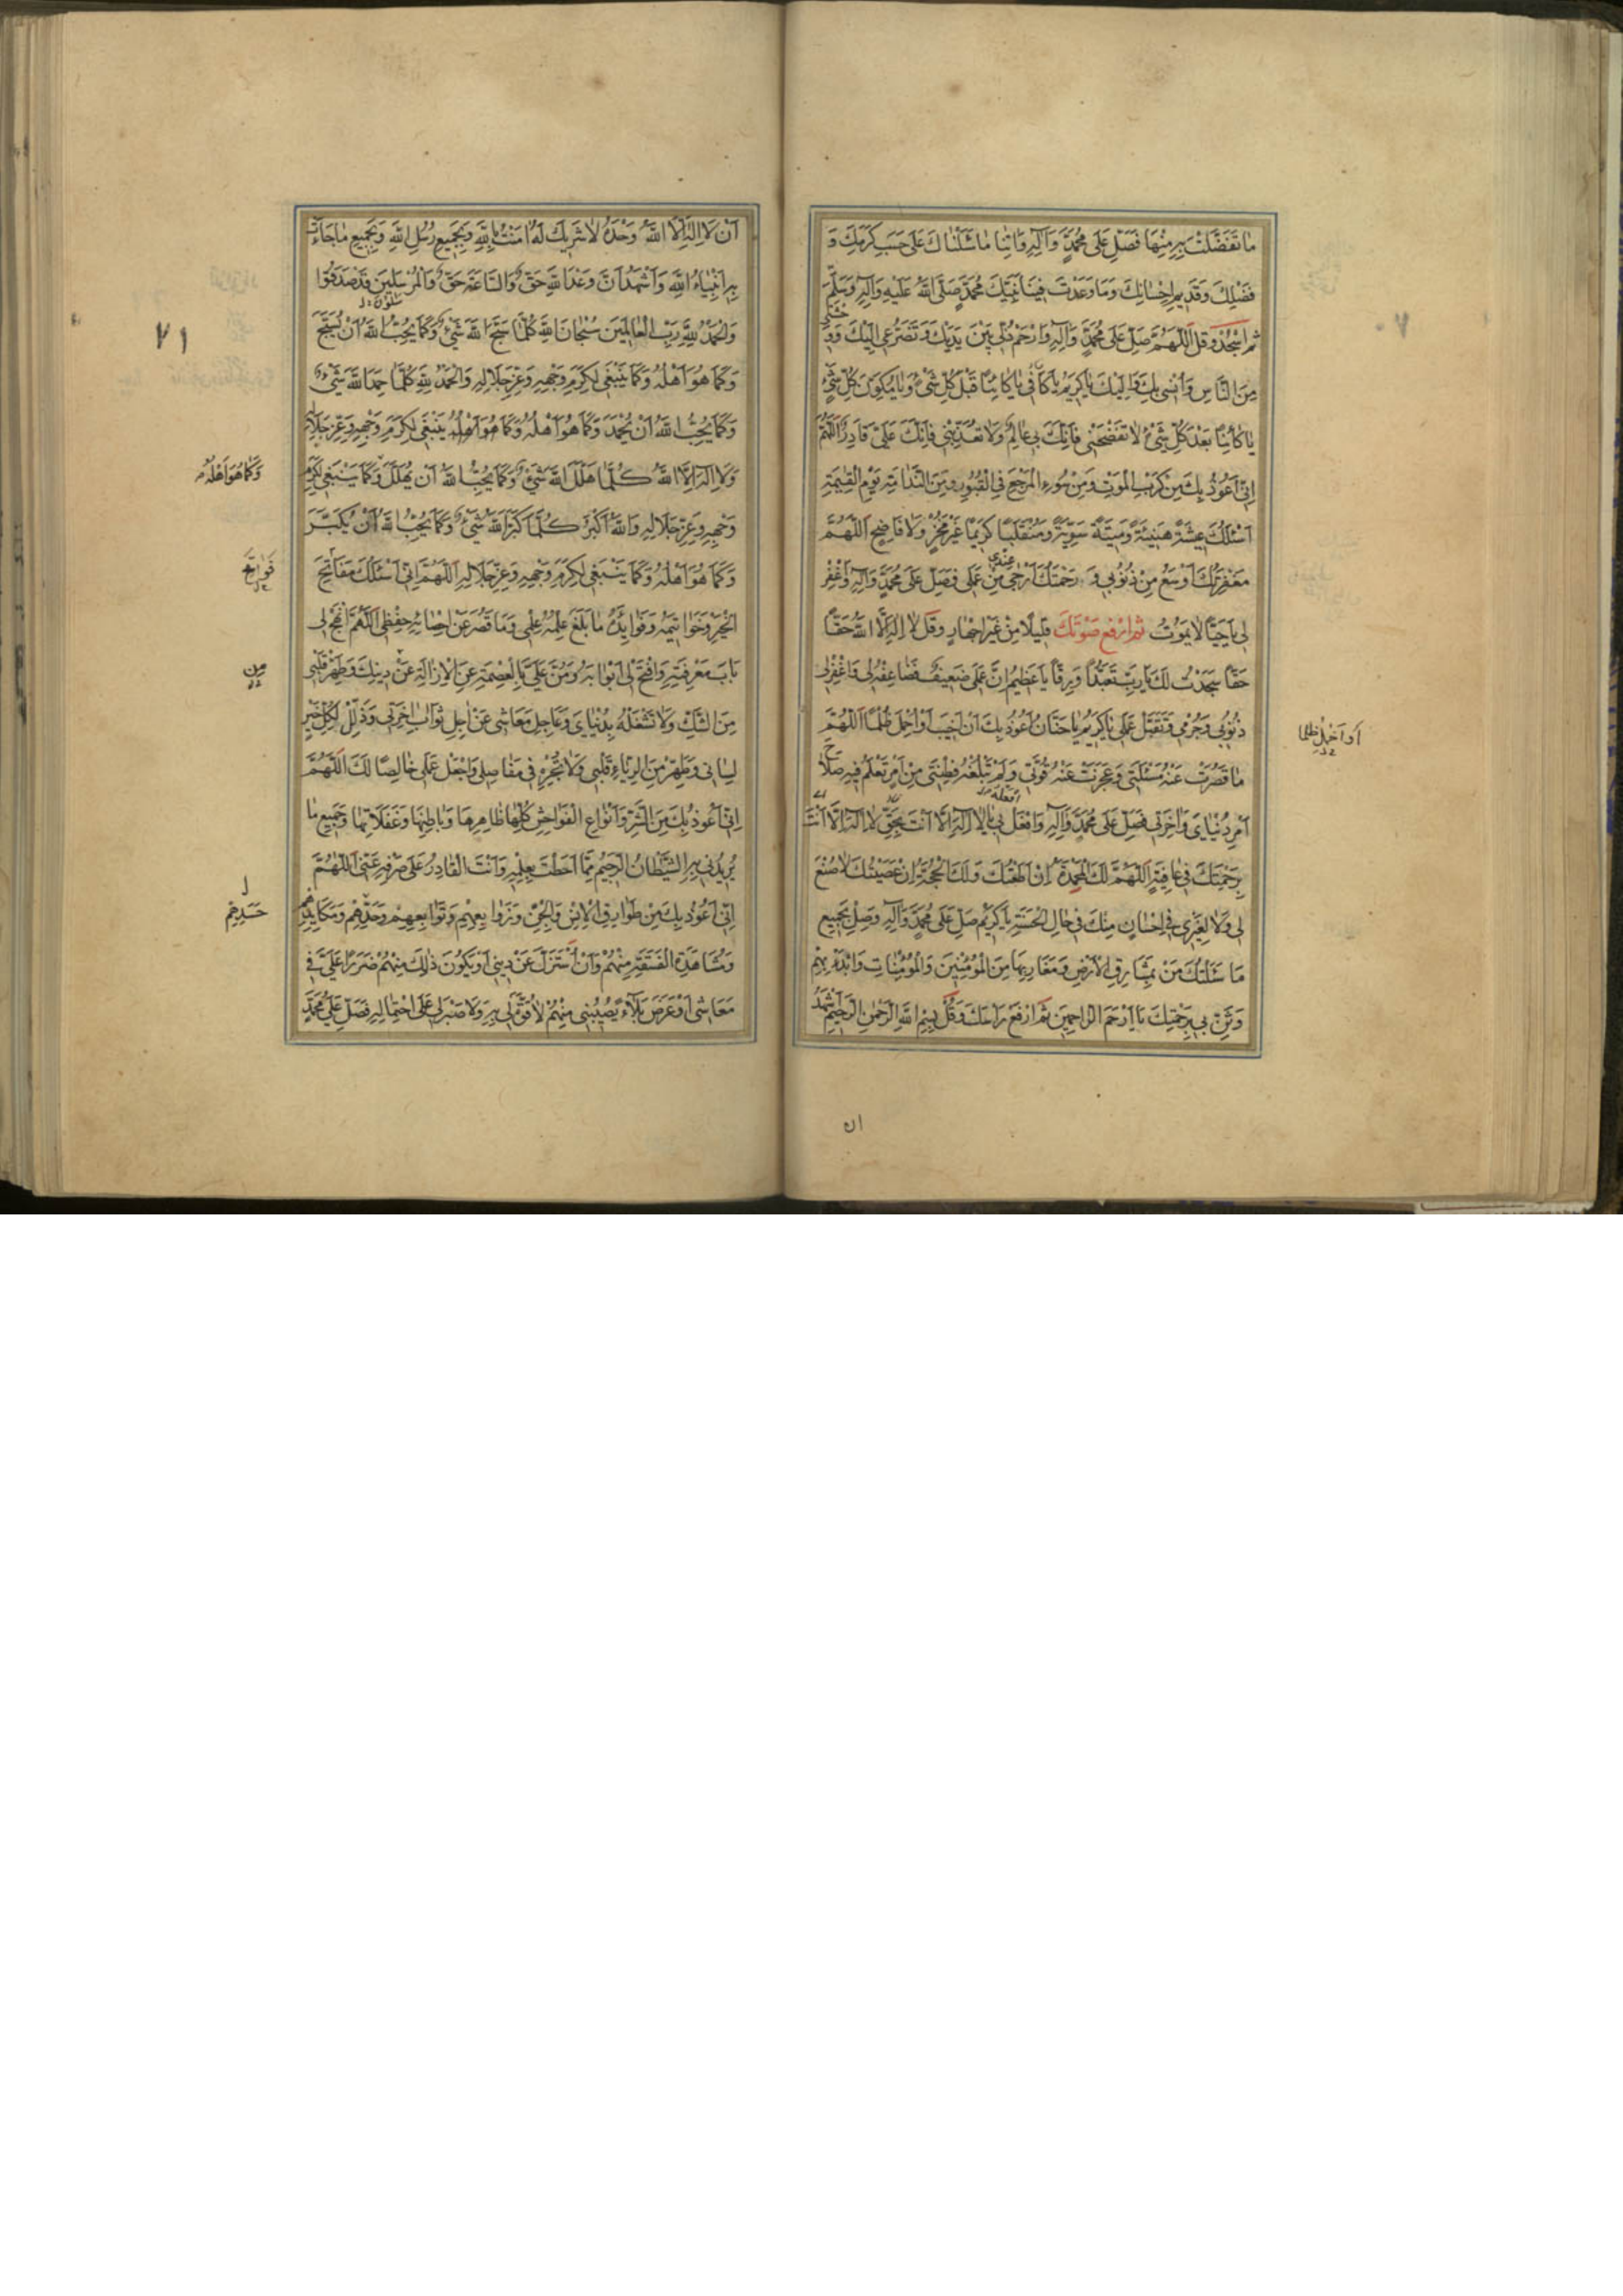 ٧٠
مٰا تَفَضَّلْتَ بِهِ مِنْهٰا فَصَلِّ عَلىٰ مُحَمَّدٍ وَآلِهِ وَاٰتِنٰا مٰا سَئَلْنٰاكَ عَلىٰ حَسَبِ كَرَمِكَ وَ
فَضْلِكَ وَقَدِيمِ اِحْسٰانِكَ وَمٰا وَعَدْتَ فِينٰا نَبِيَّكَ مُحَمَّدٍ صَلَّى اللهُ عَلَيْهِ وَآلِهِ وَسَلَّمَ
ثم اسْجُدْ وَقُل اَللّٰهُمَّ صَلِّ عَلىٰ مُحَمَّدٍ وَآلِهِ وَارْحَمْ ذُلّى بَيْنَ يَدَيْكَ وَتَضَرُّعى اِلَيْكَ وَوَحْشَتى
مِنَ النّٰاسِ وَاُنْسى بِكَ وَاِلَيْكَ يٰا كَرِيمُ يٰا كٰافى يٰا كٰائِنًا قَبْلَ كُلِّ شَىْءٍ وَيٰا مُكَوِّنَ كُلِّ شَىْءٍ
يٰا كٰائِنًا بَعْدَ كُلِّ شَىْءٍ لٰا تَفْضَحْنى فَاِنَّكَ بى عٰالِمٌ وَلٰا تُعَذِّبْنى فَاِنَّكَ عَلَىَّ قٰادِرٌ اَللّٰهُمَّ
اِنّى اَعُوذُ بِكَ مِنْ كَرْبِ الْمَوْتِ وَمِنْ سُوءِ الْمَرْجَعِ فِى الْقُبُورِ وَمِنَ النَّدٰامَةِ يَوْمَ الْقِيٰمَةِ
اَسْئَلُكَ عِيشَةً هَنِيئَةً وَمَيْتَةً سَوِيَّةً وَمُنْقَلَبًا كَرِيمًا غَيْرَ مُخْزٍ وَلٰا فٰاضِحٍ اَللّٰهُمَّ
مَغْفِرَتُكَ اَوْسَعُ مِنْ ذُنُوبى وَ رَحْمَتُكَ اَرْجىٰ عِنْدى مِنْ عَمَلى فَصَلِّ عَلىٰ مُحَمَّدٍ وَآلِهِ وَاغْفِرْ
لى يٰا حَيًّا لٰا يَمُوتُ ثم ارْفَع صَوْتَكَ قَلِيلًا مِنْ غَيْرِ اِجْهٰارٍ وَقُل لٰا اِلٰهَ اِلَّا اللهُ حَقًّا
حَقًّا سَجَدْتُ لَكَ يٰا رَبِّ تَعَبُّدًا وَرِقًّا يٰا عَظِيمُ اِنَّ عَمَلى ضَعِيفٌ فَضٰاعِفْهُ لى وَاغْفِرْ لى
ذُنُوبى وَجُرْمى وَتَقَبَّلْ عَمَلى يٰا كَرِيمُ يٰا حَنّٰانُ اَعُوذُ بِكَ اَنْ اَخِيبَ اَوْ اَحْمِلَ ظُلْمًا اَللّٰهُمَّ
اَوْ اَحْمِلَ ظُلْمًا
مٰا قَصُرَتْ عَنْهُ مَسْئَلَتى وَعَجَزَتْ عَنْهُ قُوَّتى وَلَمْ تَبْلُغْهُ فِطْنَتى مِنْ اَمْرٍ تَعْلَمُ فِيهِ صَلٰاحَ
اَمْرِ دُنْيٰاىَ وَاٰخِرَتى فَصَلِّ عَلىٰ مُحَمَّدٍ وَآلِهِ وَافْعَلْ بى يٰا لٰا اِلٰهَ اِلّٰا اَنْتَ بِحَقِّ لٰا اِلٰهَ اِلّٰا اَنْتَ
بِرَحْمَتِكَ فى عٰافِيَةٍ اَللّٰهُمَّ لَكَ الْمَحْمَدَةُ اِنْ اَطَعْتُكَ وَلَكَ الْحُجَّةُ اِنْ عَصَيْتُكَ لٰا صُنْعَ
لى وَلٰا لِغَيْرى فى اِحْسٰانٍ مِنْكَ فى حٰالِ الْحَسَنَةِ يٰا كَرِيمُ صَلِّ عَلىٰ مُحَمَّدٍ وَآلِهِ وَصِلْ بِجَمِيعِ
مٰا سَئَلْتُكَ مَنْ بِمَشٰارِقِ الْاَرْضِ وَمَغٰارِبِهٰا مِنَ الْمُؤْمِنِينَ وَالْمُؤْمِنٰاتِ وَابْدَءْ بِهِمْ
وَثَنِّ بى بِرَحْمَتِكَ يٰا اَرْحَمَ الرّٰاحِمِينَ ثُمَّ ارْفَعْ رَاْسَكَ وَقُلْ بِسْمِ اللهِ الرَّحْمٰنِ الرَّحِيمِ اَشْهَدُ
ان
٧١
اَنْ لٰا اِلٰهَ اِلَّا اللهُ وَحْدَهُ لٰا شَرِيكَ لَهُ اٰمَنْتُ بِاللهِ وَبِجَمِيعِ رُسُلِ اللهِ وَبِجَمِيعِ مٰا جٰاءَتْ
بِهِ اَنْبِيٰاءُ اللهِ وَاَشْهَدُ اَنَّ وَعْدَ اللهِ حَقٌّ وَالسّٰاعَةَ حَقٌّ وَالْمُرْسَلِينَ قَدْ صَدَقُوا
وَالْحَمْدُ لِلّٰهِ رَبِّ الْعٰالَمِينَ سُبْحٰانَ اللهِ كُلَّمٰا سَبَّحَ اللهَ شَىْءٌ وَكَمٰا يُحِبُّ اللهُ اَنْ يُسَبَّحَ
وَكَمٰا هُوَ اَهْلُهُ وَكَمٰا يَنْبَغى لِكَرَمِ وَجْهِهِ وَعِزِّ جَلٰالِهِ وَالْحَمْدُ لِلّٰهِ كُلَّمٰا حَمِدَ اللهَ شَىْءٌ
وَكَمٰا يُحِبُّ اللهُ اَنْ يُحْمَدَ وَكَمٰا هُوَ اَهْلُهُ وَكَمٰا هُوَ اَهْلُهُ يَنْبَغى لِكَرَمِ وَجْهِهِ وَعِزِّ جَلٰالِهِ
وَلٰا اِلٰهَ اِلَّا اللهُ كُلَّمٰا هَلَّلَ اللهَ شَىْءٌ وَكَمٰا يُحِبُّ اللهُ اَنْ يُهَلَّلَ وَكَمٰا يَنْبَغى لِكَرَمِ
وَكَمٰا هُوَ اَهْلُهُ
وَجْهِهِ وَعِزِّ جَلٰالِهِ وَاللهُ اَكْبَرُ كُلَّمٰا كَبَّرَ اللهَ شَىْءٌ وَكَمٰا يُحِبُّ اللهُ اَنْ يُكَبَّرَ
وَكَمٰا هُوَ اَهْلُهُ وَكَمٰا يَنْبَغى لِكَرَمِ وَجْهِهِ وَعِزِّ جَلٰالِهِ اَللّٰهُمَّ اِنّى اَسْئَلُكَ مَفٰاتِحَ
فَوٰاتِحَ
الْخَيْرِ وَخَوٰاتِيمَهُ وَفَوٰايِدَهُ مٰا بَلَغَ عِلْمَهُ عِلْمى وَمٰا قَصُرَ عَنْ اِحْصٰائِهِ حِفْظى اَللّٰهُمَّ انْهَجْ لى
بٰابَ مَعْرِفَتِهِ وَافْتَحْ لى اَبْوٰابَهُ وَمُنَّ عَلَىَّ بِالْعِصْمَةِ عَنِ الْاِزٰالَةِ عَنْ دِينِكَ وَطَهِّرْ قَلْبى
مِن
مِنَ الشَّكِّ وَلٰا تَشْغَلْهُ بِدُنْيٰاىَ وَعٰاجِلِ مَعٰاشى عَنْ اٰجِلِ ثَوٰابِ اٰخِرَتى وَذَلِّلْ لِكُلِّ خَيْرٍ
لِسٰانى وَطَهِّرْ مِنَ الرِّيٰاءِ قَلْبى وَلٰا تُجْرِهِ فى مَفٰاصِلى وَاجْعَلْ عَمَلى خٰالِصًا لَكَ اَللّٰهُمَّ
اِنّى اَعُوذُ بِكَ مِنَ الشَّرِّ وَاَنْوٰاعِ الْفَوٰاحِشِ كُلِّهٰا ظٰاهِرِهٰا وَبٰاطِنِهٰا وَغَفَلٰاتِهٰا وَجَمِيعِ مٰا
يُرِيدُنى بِهِ الشَّيْطٰانُ الرَّجِيمُ مِمّٰا اَحَطْتَ بِعِلْمِهِ وَاَنْتَ الْقٰادِرُ عَلىٰ صَرْفِهِ عَنّى اَللّٰهُمَّ
اِنّى اَعُوذُ بِكَ مِنْ طَوٰارِقِ الْاِنْسِ وَالْجِنِّ وَزَوٰابِعِهِمْ وَتَوٰابِعِهِمْ وَحَدِّهِمْ وَمَكٰايِدِهِمْ
حَسَدِهِمْ
وَمُشٰاهَدَةِ الْفَسَقَةِ مِنْهُمْ وَاَنْ اُسْتَزَلَّ عَنْ دِينى اَوْ يَكُونَ ذٰلِكَ مِنْهُمْ ضَرَرًا عَلَىَّ فى
مَعٰاشى اَوْ عَرَضَ بَلٰاءٍ يُصِيبُنى مِنْهُمْ لٰا قُوَّةَ لى بِهِ وَلٰا صَبْرَ لى عَلىٰ احْتِمٰالِهِ فَصَلِّ عَلىٰ مُحَمَّدٍ